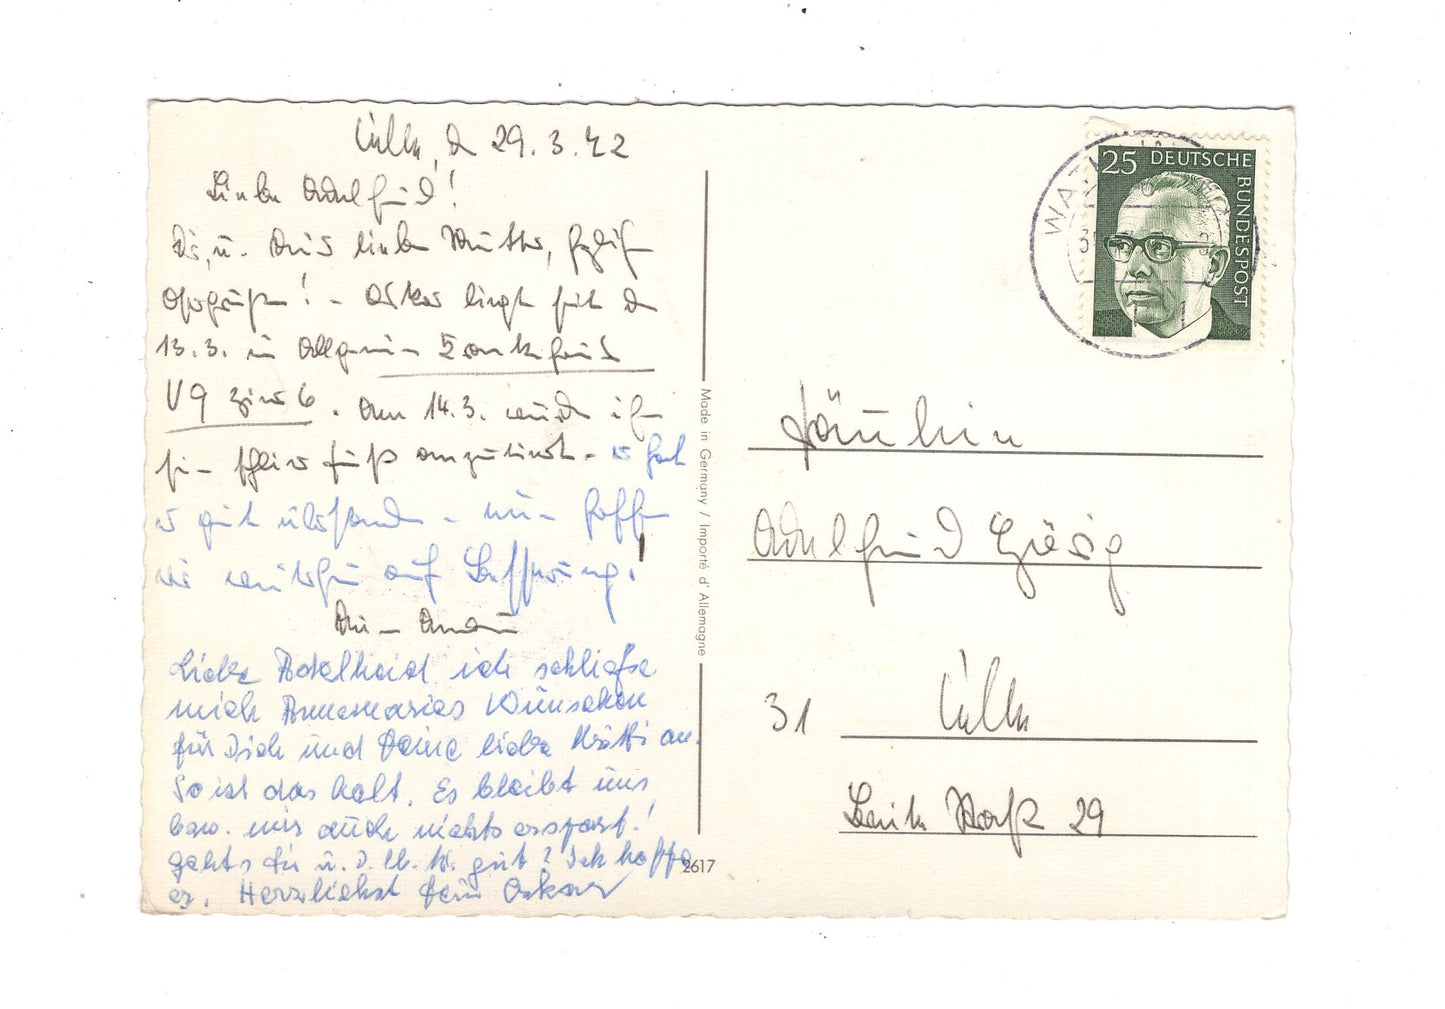 Celle, d 29.3.72
Liebe Adelheid!
Dir, u. Deiner lieben Mutter, herzliche
Ostergrüße! - Oskar liegt seit d
13.3. im Allgem. Krankenhaus
V9 Zim 6. Am 14.3. wurde ihm
ein
er gut überstanden - nun hoffen
wir weiterhin auf Besserung!
Deine
Liebe Adelheid ich schließe
mich Annemaries Wünschen
für Dich und Deine liebe Mutti an.
So ist das halt. Es bleibt uns
bzw. mir auch nichts erspart!
gehts dir u. D. lb. M. gut? Ich hoffe
es. Herzlichst Dein Oskar
25 DEUTSCHE
BUNDESPOST
Made in Germany / Importé d'Allemagne
Fräulein
Adelheid
31 Celle
29
2617